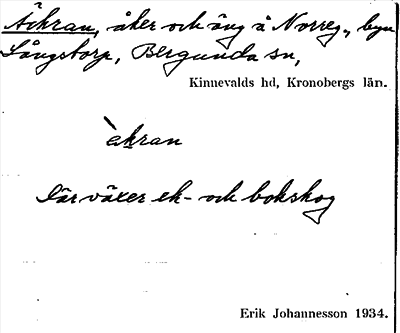 Äckran, åker och äng å Norreg., byn
Långstorp, Bergunda sn,
Kinnevalds hd, Kronobergs län.
èkran
Där växer ek- och bokskog
Erik Johannesson 1934.